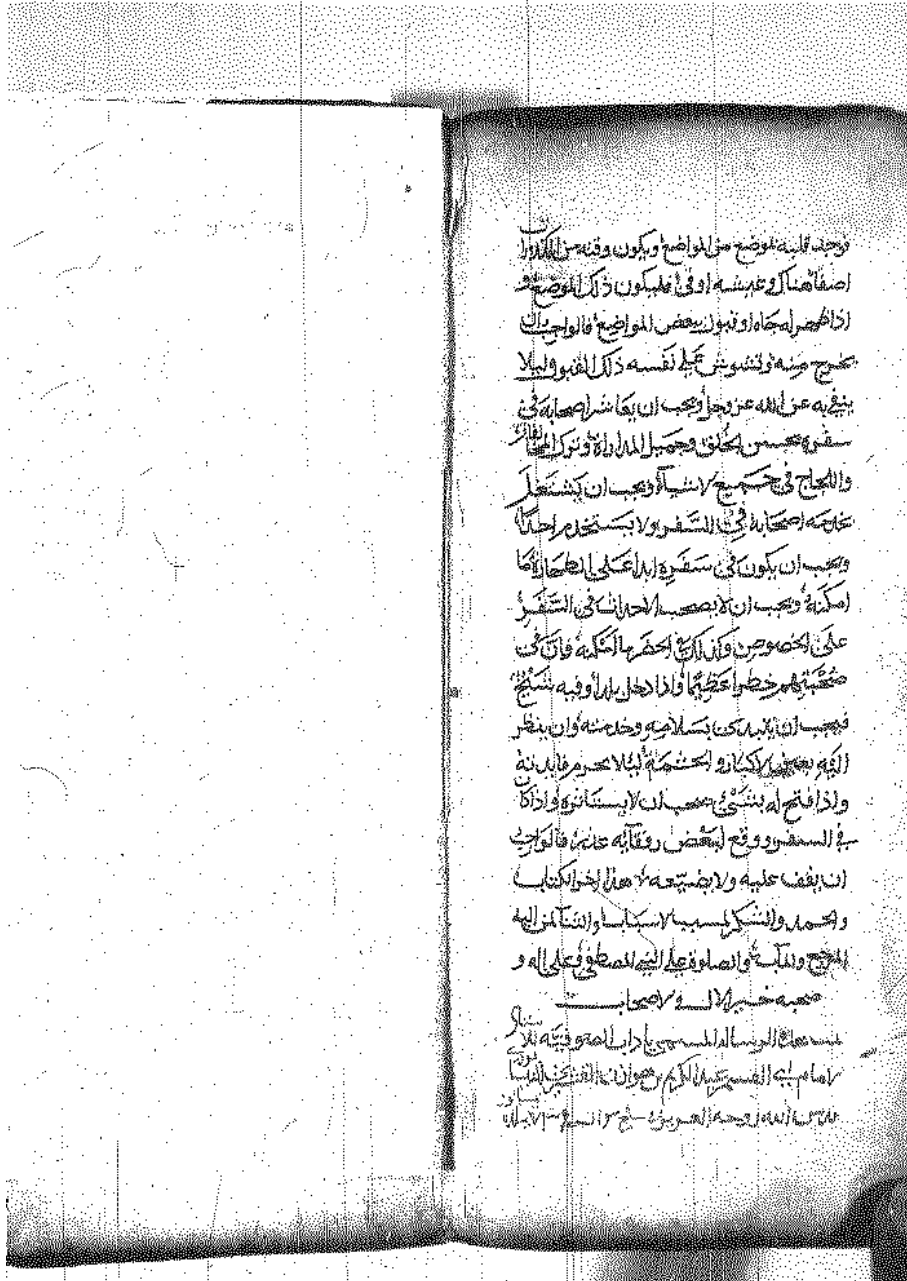 فوجد قلبه بموضع من المواضع ويكون وقته من الكدورات
اصفا هناك وعيشه اوفى فليكون ذلك الموضع و
اذا ظهر له جاه او قبول ببعض المواضع فالواجب ان
يخرج منه وتشوش على نفسه ذلك القبول ليلا
ينفى به عن الله عز وجل ويجب ان يعاشر اصحابه في
سفره بحسن الخلق وجميل المداراة وترك
واللجاج في جميع الاشيآء ويجب ان يشتغل
بخدمة اصحابه في السفر ولا يستخدم احدا
ويجب ان يكون في سفره ابدا على الطهارة ما
امكنه ويجب ان لا يصحب الاحداث في السفر
على الخصوص وكذلك في الحضر ما امكنه فان في
صحبتهم خطرا عظيما واذا دخل بلدا وفيه شيخ
فيجب ان يبدئ بسلامه وخدمته وان ينظر
اليه بعين الاكبار والحشمة لئلا يحرم فايدته
واذا فتح له بشئ يجب ان لا يستاثره واذا كان
في السفر ووقع لبعض رفقآئه علة فالواجب
ان يقف عليه ولا يضيعه هذا اخر الكتاب
والحمد والشكر لمسبب الاسباب والثنآ لمن اليه
المرجع والمآب والصلوة على النبي المصطفى وعلى اله و
صحبه خير الال والاصحاب
الرسالة المسمى باداب الصوفية للا
مام ابي القسم عبد الكريم بن هوازن القشيري
قدس الله روحه العزيز